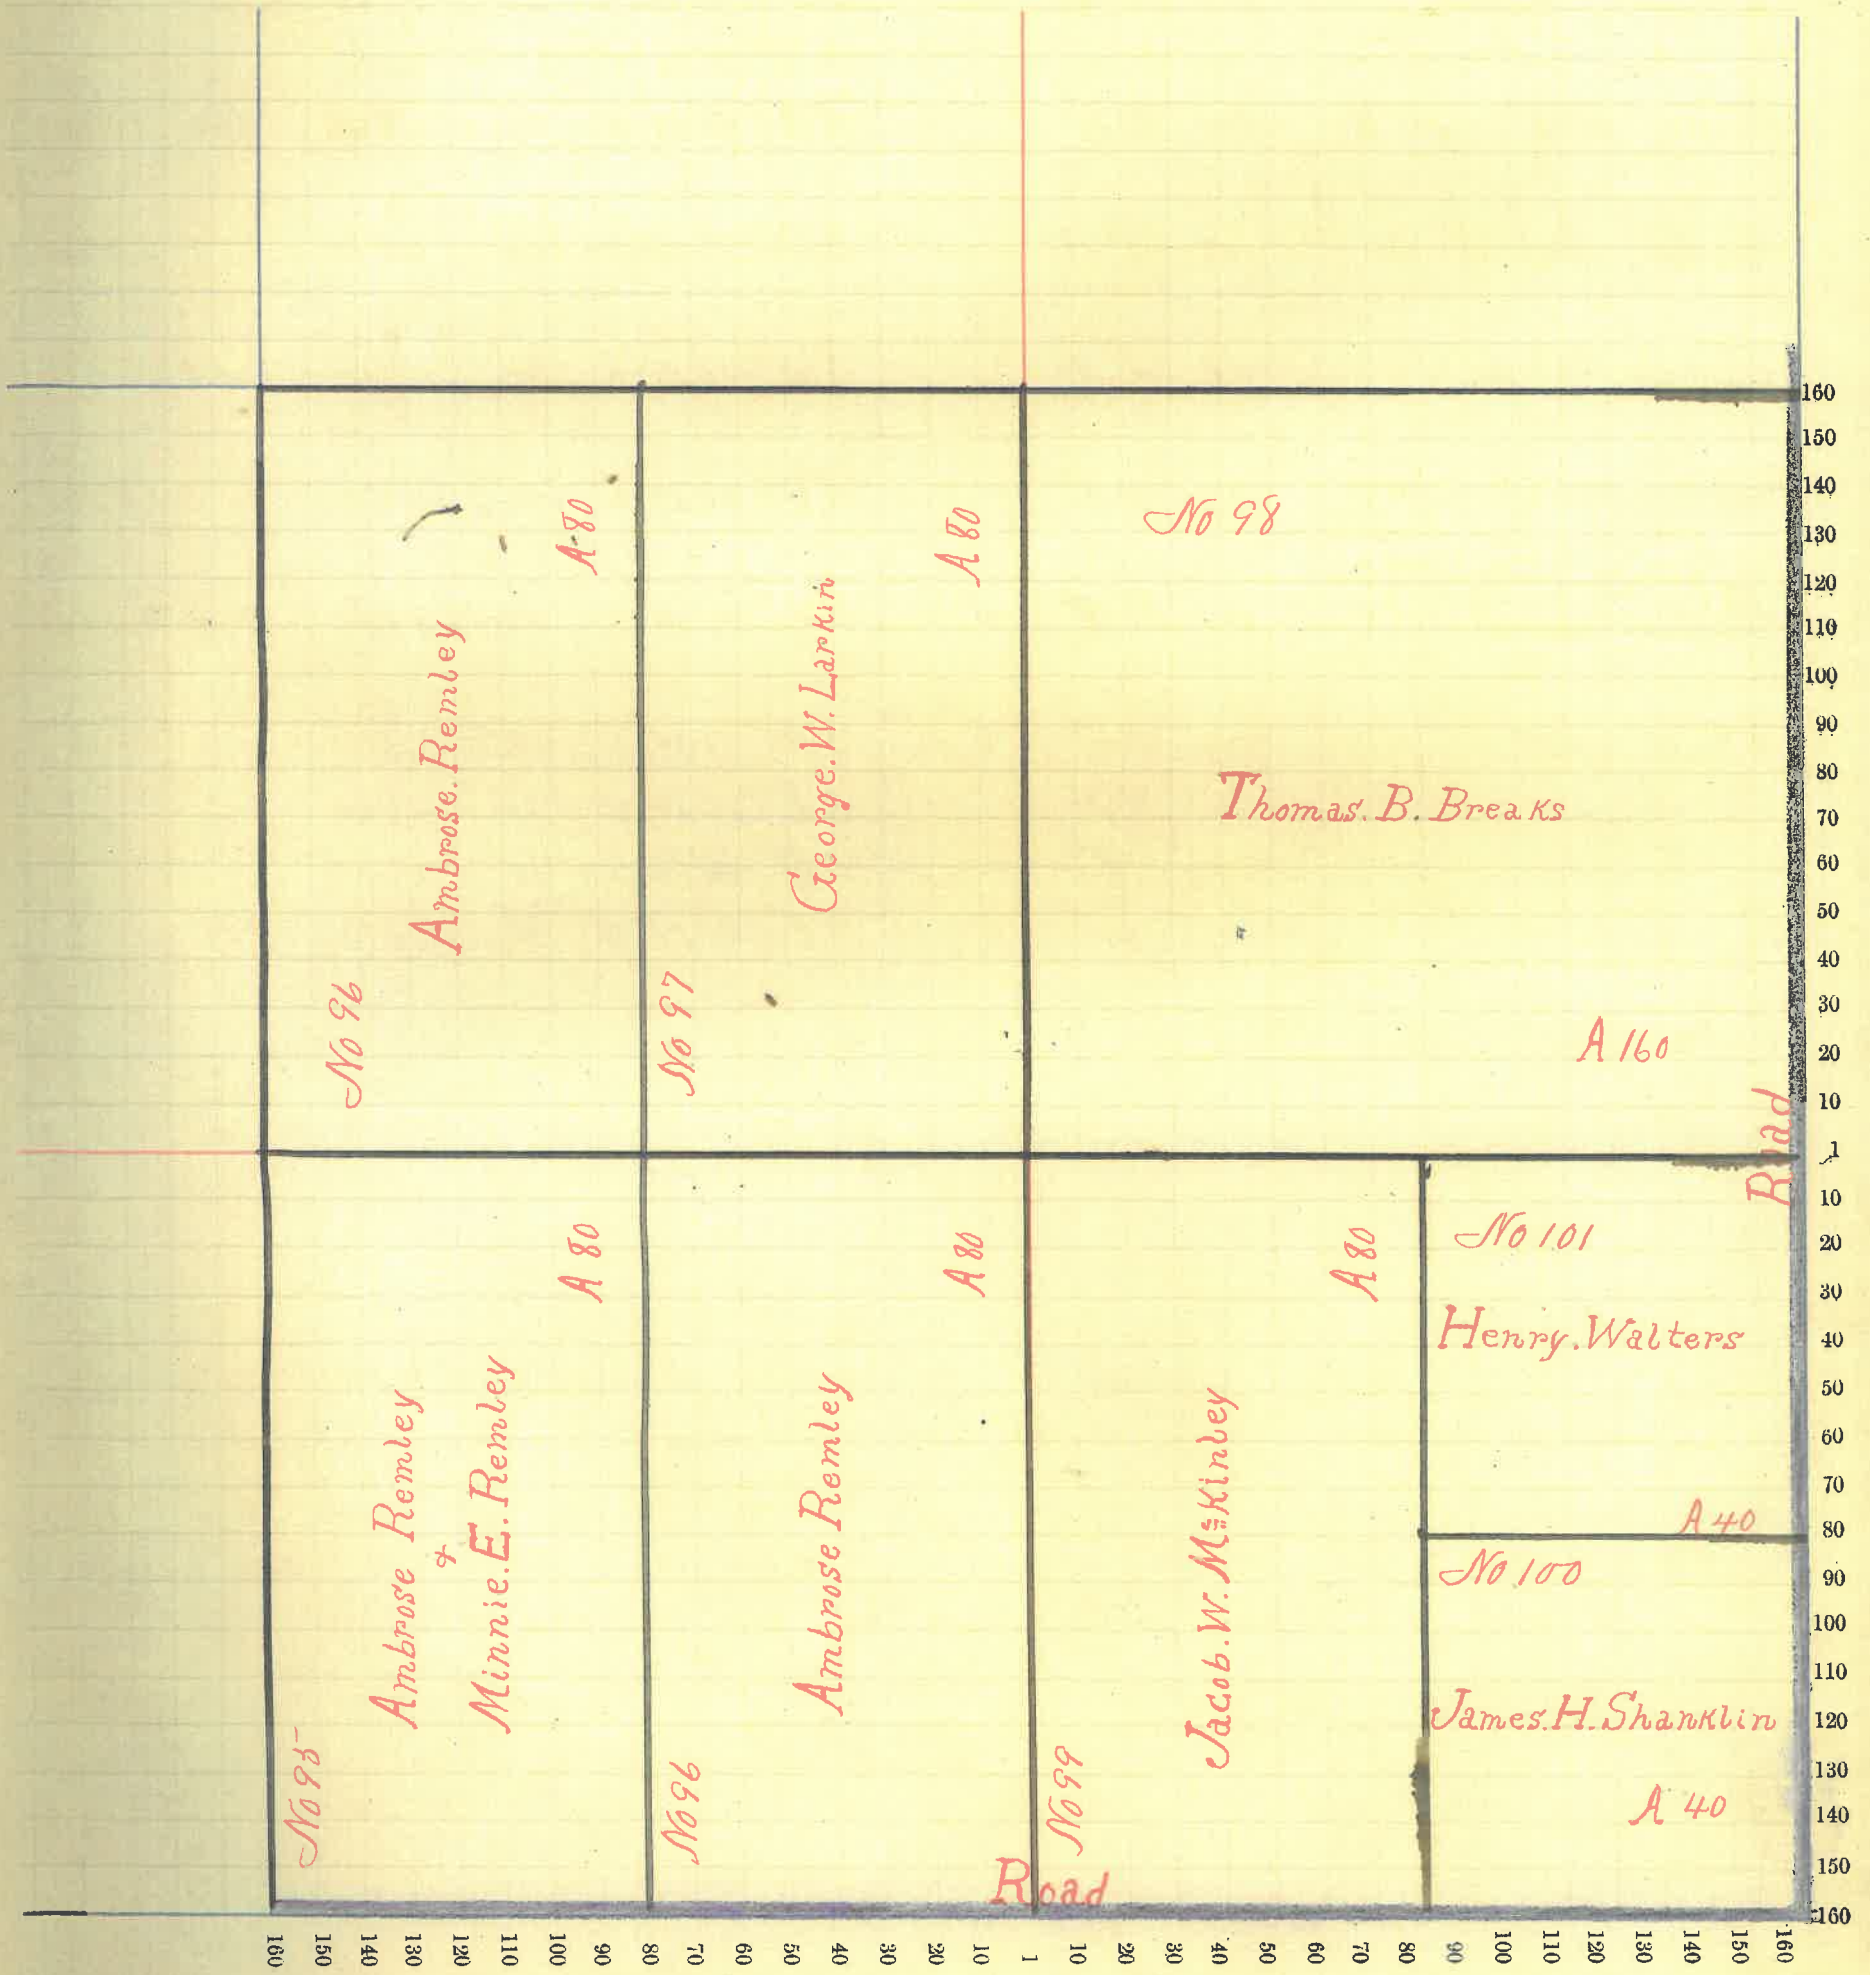 No 96
Ambrose. Remley
A 80
No 97
George. W. Larkin
A 80
No 98
Thomas. B. Breaks
A 160
Road
No 95
Ambrose Remley
&
Minnie. E. Remley
A 80
No 96
Ambrose Remley
A 80
No 99
Jacob. W. McKinley
A 80
No 101
Henry. Walters
A 40
No 100
James. H. Shanklin
A 40
Road
160
150
140
130
120
110
100
90
80
70
60
50
40
30
20
10
1
10
20
30
40
50
60
70
80
90
100
110
120
130
140
150
160
160 150 140 130 120 110 100 90 80 70 60 50 40 30 20 10 1 10 20 30 40 50 60 70 80 90 100 110 120 130 140 150 160